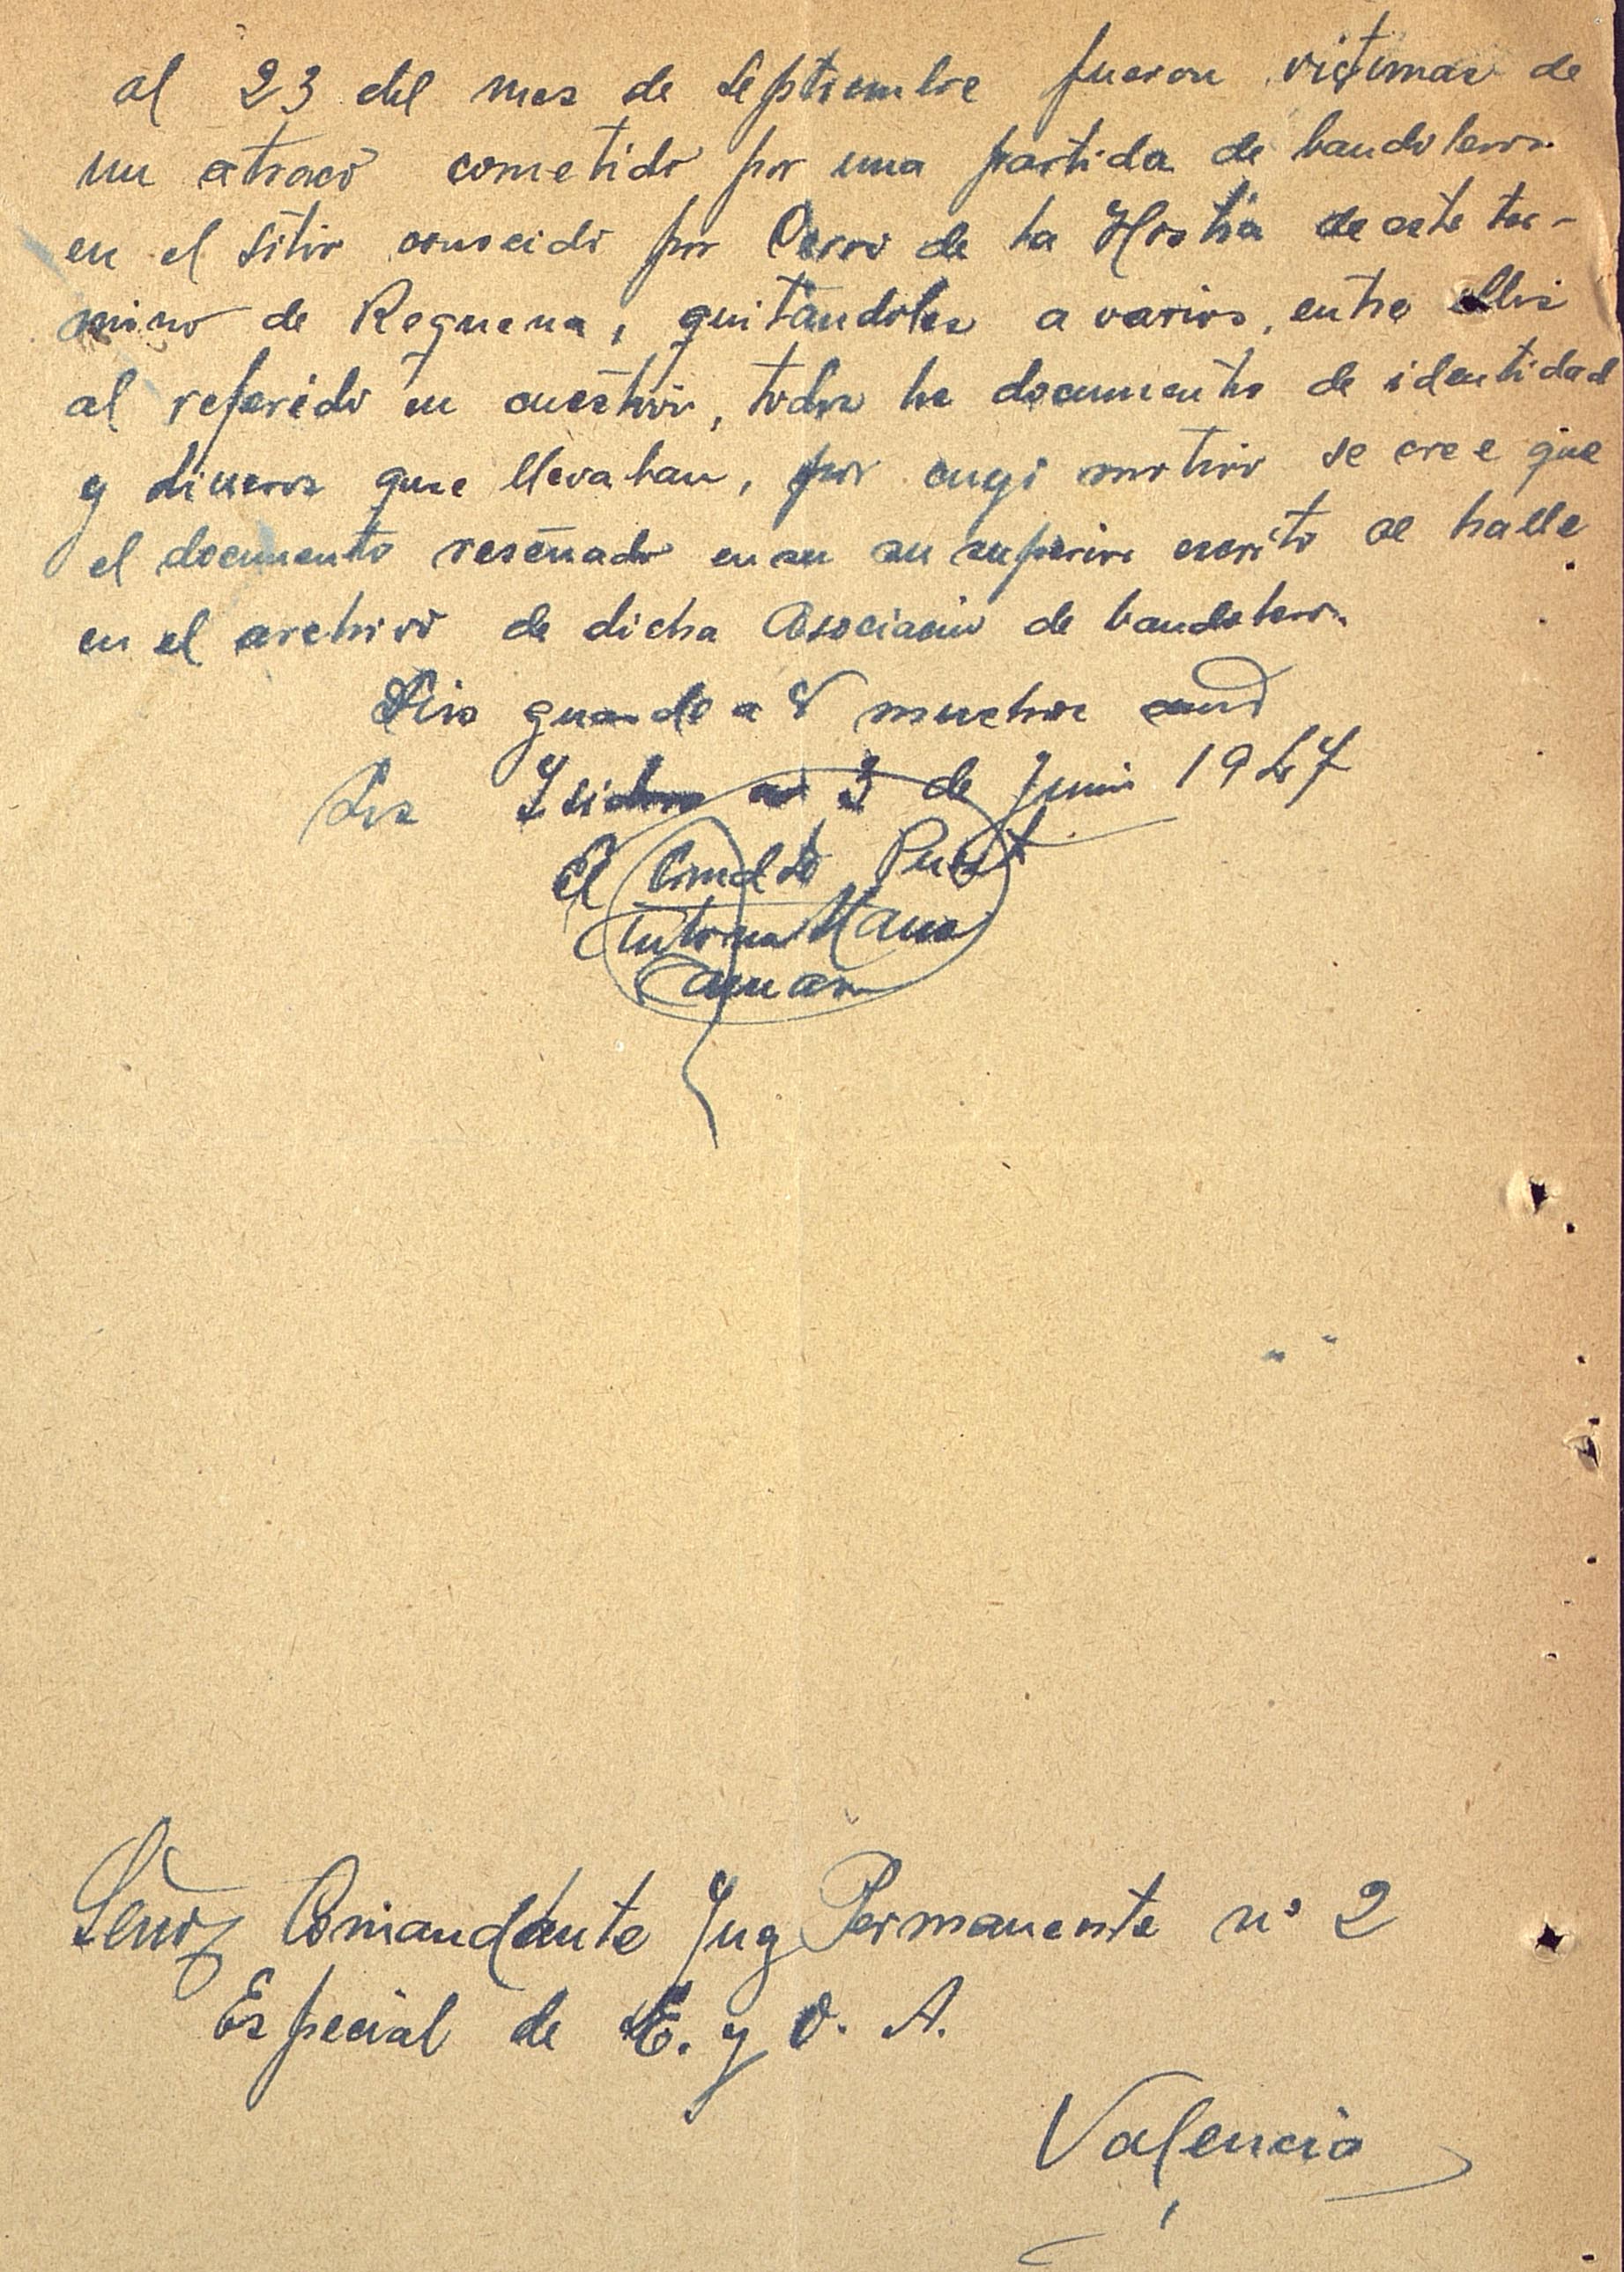 al 23 del mes de Septiembre fueron victimas de
un atraco cometido por una partida de bandoleros
en el sitio conocido por Cerro de la Hostia de este ter-
mino de Requena, quitandoles a varios, entre ellos
al referido en cuestion, todos los documentos de identidad
y dineros que llevaban, por cuyo motivo se cree que
el documento reseñado en su su superior escrito se halle
en el archivo de dicha Asociacion de bandoleros.
Dios guarde a V muchos
Los Isidros a 3 de Junio 1947
El Comdte Puest
Antonio
Señor Comandante Juez Permanente nº 2
Especial de E. y O. A.
Valencia